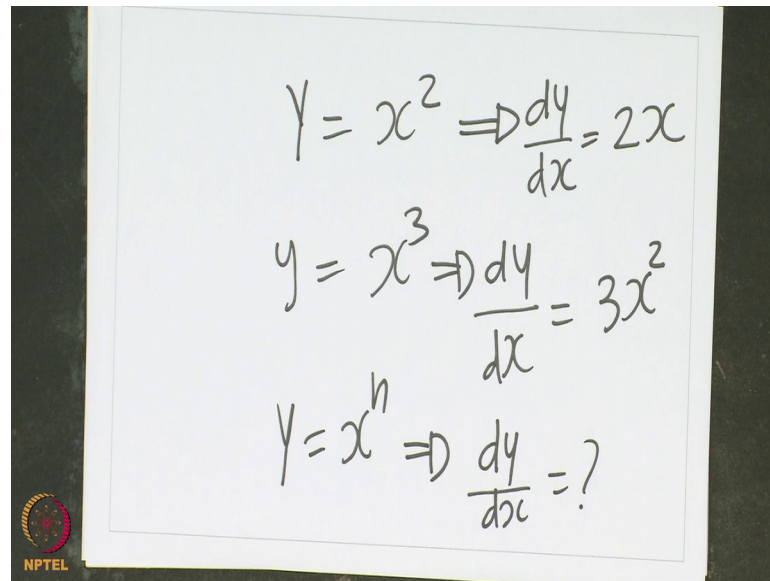 Y = x² ⇒ dy/dx = 2x
y = x³ ⇒ dy/dx = 3x²
Y = xⁿ ⇒ dy/dx = ?
NPTEL